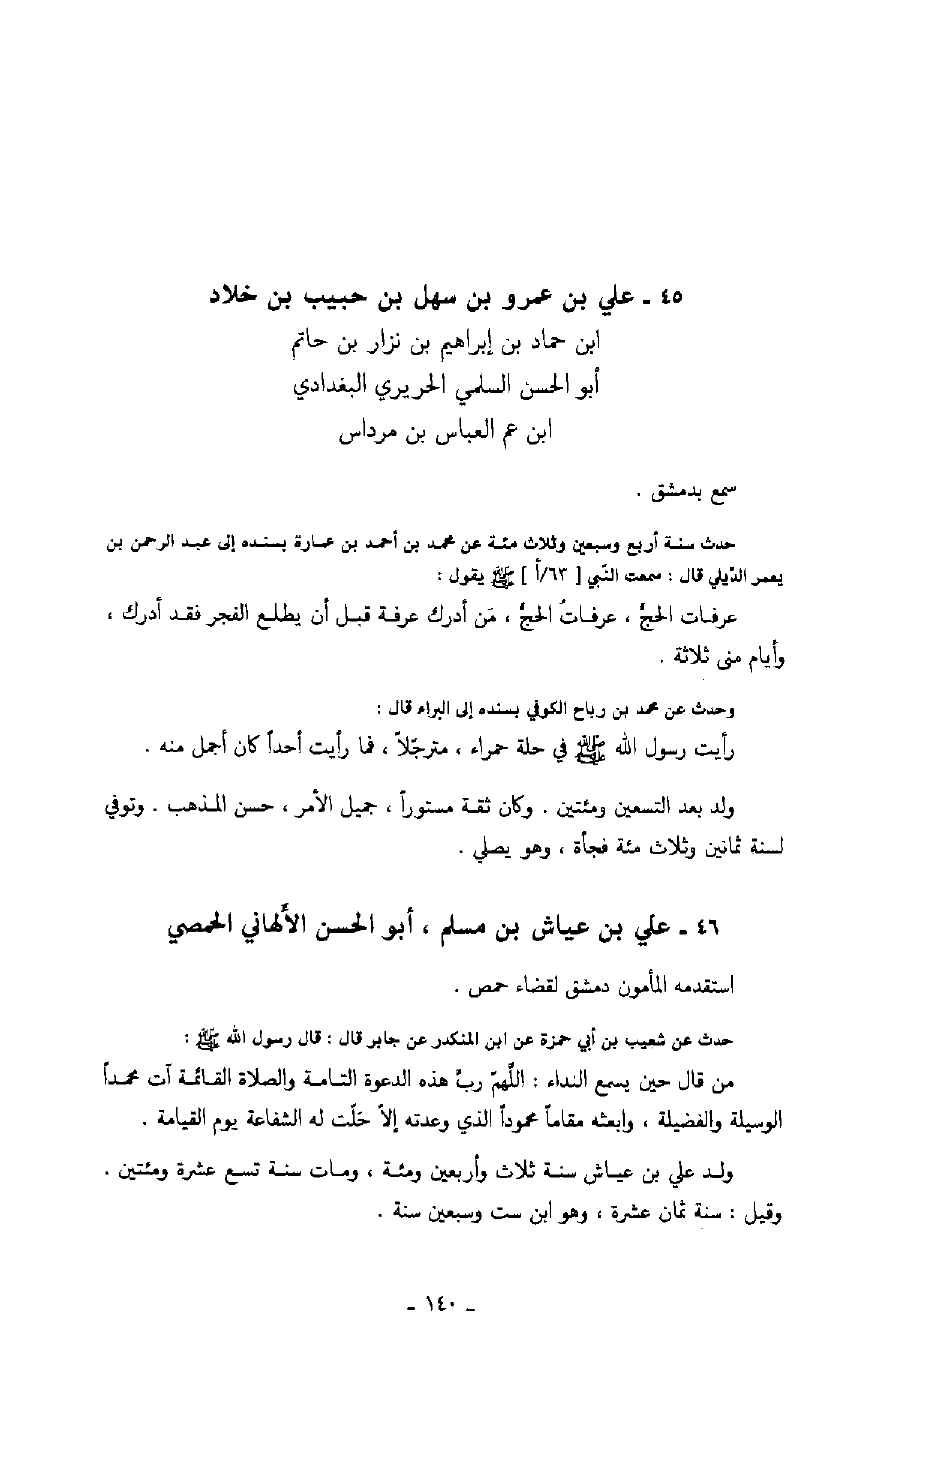 ٤٥ ـ علي بن عمرو بن سهل بن حبيب بن خلاد
ابن حماد بن إبراهيم بن نزار بن حاتم
أبو الحسن السلمي الحريري البغدادي
ابن عم العباس بن مرداس
سمع بدمشق .
حدث سنة أربع وسبعين وثلاث مئة عن محمد بن أحمد بن عمارة بسنده إلى عبد الرحمن بن
يعمر الدّيلي قال : سمعت النّبي [ ٦٣/أ ] ﷺ يقول :
عرفات الحجُّ ، عرفاتُ الحجُّ ، مَن أدرك عرفة قبل أن يطلع الفجر فقد أدرك ،
وأيام منى ثلاثة .
وحدث عن محمد بن رباح الكوفي بسنده إلى البراء قال :
رأيت رسول الله ﷺ في حلة حمراء ، مترجّلاً ، فما رأيت أحداً كان أجمل منه .
ولد بعد التسعين ومئتين . وكان ثقة مستوراً ، جميل الأمر ، حسن المذهب . وتوفي
لسنة ثمانين وثلاث مئة فجأة ، وهو يصلي .
٤٦ ـ علي بن عياش بن مسلم ، أبو الحسن الأَلهاني الحمصي
استقدمه المأمون دمشق لقضاء حمص .
حدث عن شعيب بن أبي حمزة عن ابن المنكدر عن جابر قال : قال رسول الله ﷺ :
من قال حين يسمع النداء : اللّهمّ ربَّ هذه الدعوة التامة والصلاة القائمة آت محمداً
الوسيلة والفضيلة ، وابعثه مقاماً محموداً الذي وعدته إلاّ حَلّت له الشفاعة يوم القيامة .
ولد علي بن عياش سنة ثلاث وأربعين ومئة ، ومات سنة تسع عشرة ومئتين .
وقيل : سنة ثمان عشرة ، وهو ابن ست وسبعين سنة .
ـ ١٤٠ ـ